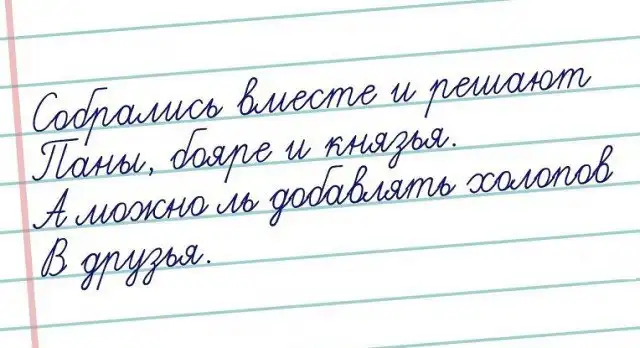 Собрались вместе и решают
Паны, бояре и князья.
А можно ль добавлять холопов
В друзья.